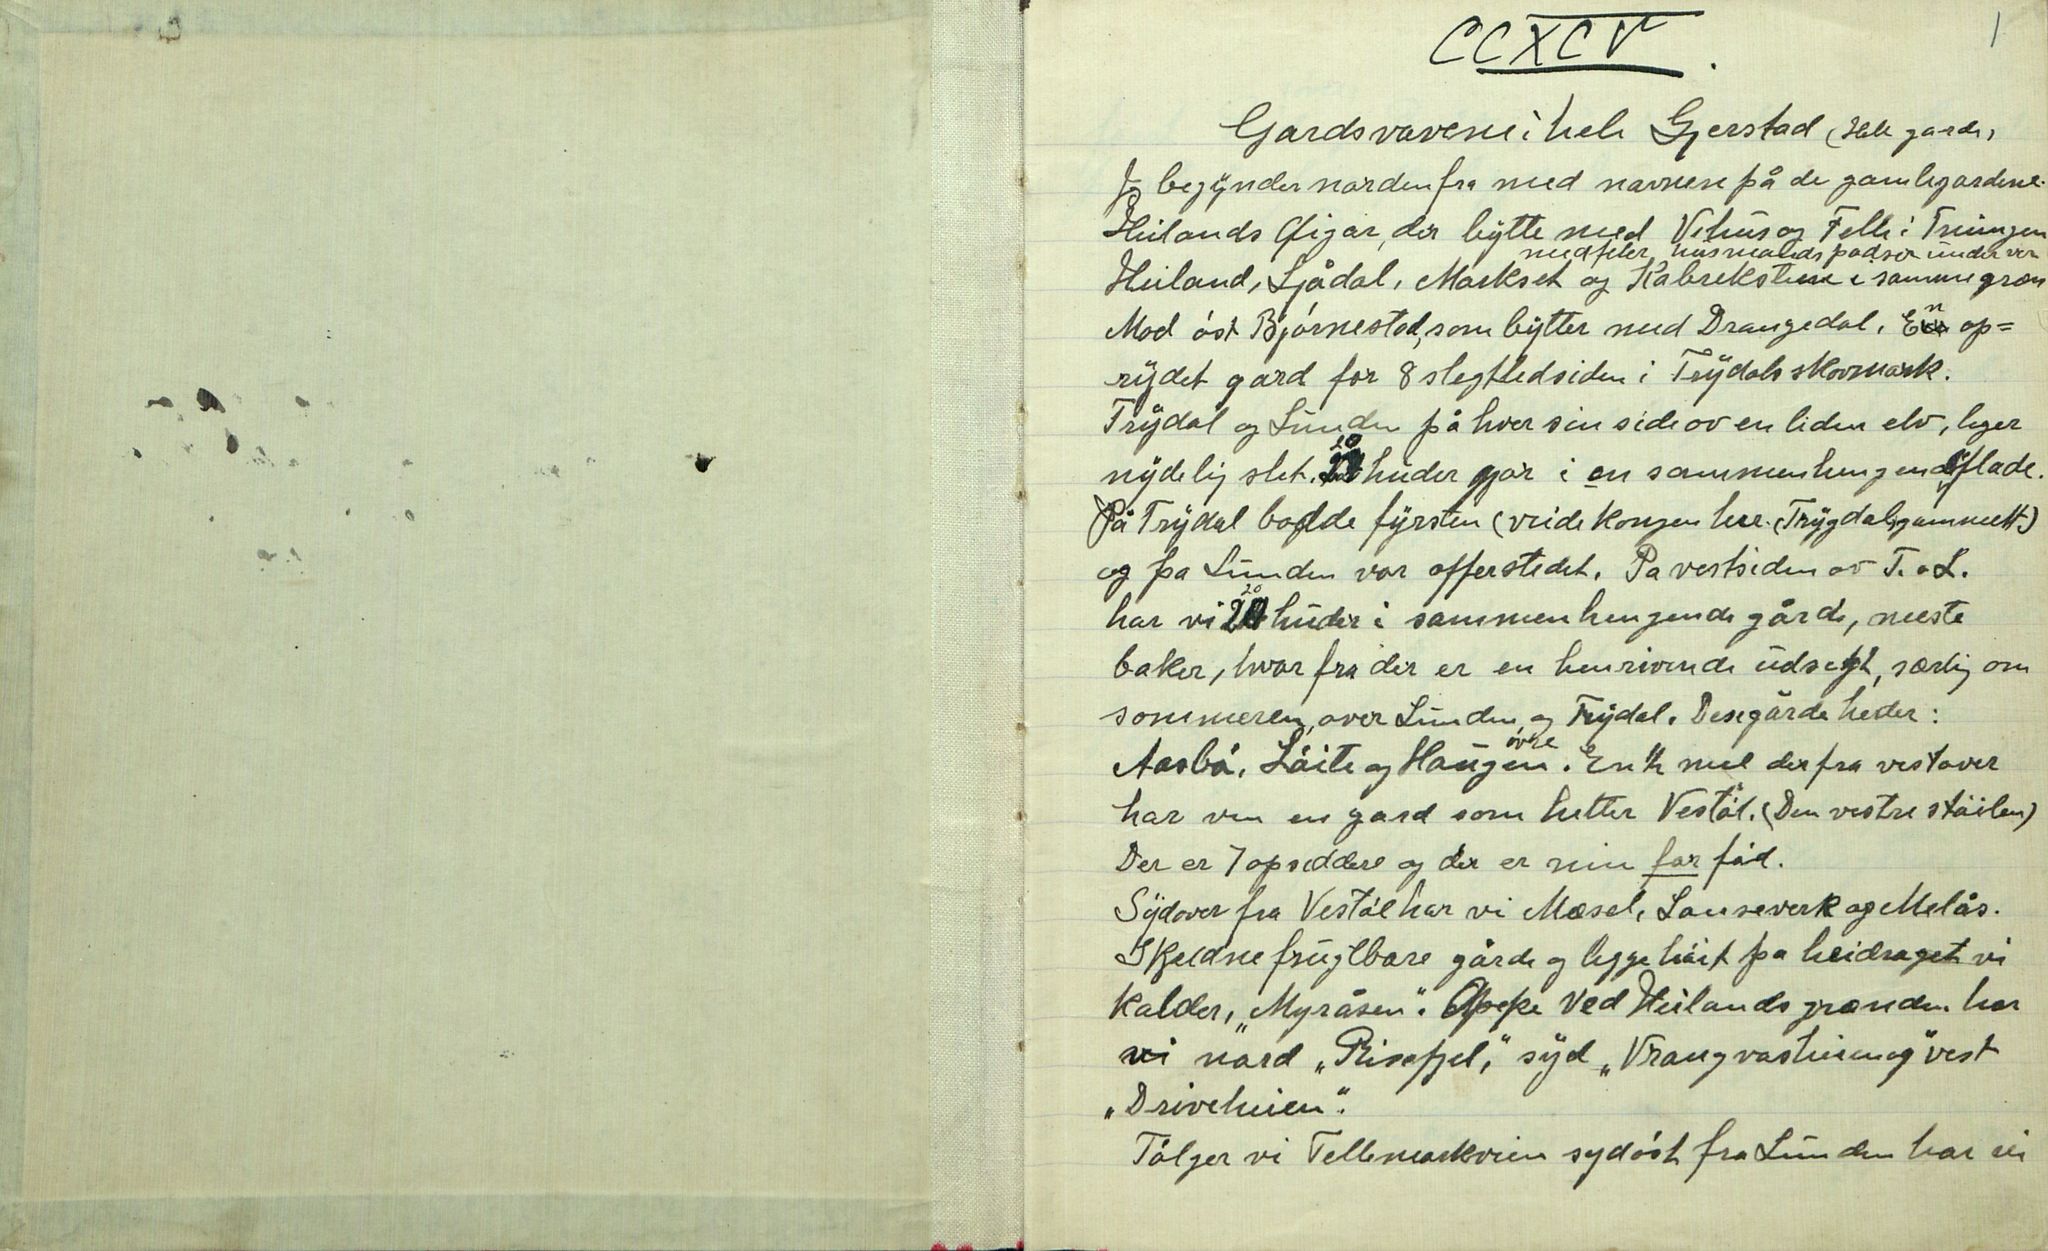 CCXCV.
1
Gardsnavene i hele Gjerstad (Hele garde,
Jeg begynder nordenfra med navnene på de gamle gardene.
Heilands Øigar, der bytte med Vehus og Felle i Treungen
medfeler husmandspladser under ver
Heiland, Ljådal, Markset og Kabrekstene i samme græn
Mod óst Bjórnestad, som bytter med Drangedal. En op=
rydet gard for 8 slegtled siden i Trydals skovmark.
Trydal og Lunden på hver sin side ov en liden elv, leger
nydelig slet. 20 huder gjor i en sammenhengende flade.
På Trydal bodde fyrsten (veidekongen her. (Trygdal, gammelt)
og pa Lunden var offerstedet. Pa vestsiden ov T. o L.
har vi 20 huder i sammenhengende gårde, meste
baker, hvor fra der er en henrivende udsegt, særlig om
sommeren, over Lunden og Trydal. Dese gårde heder:
Aasbó, Lóite og Haugen óvre. En ½ mil derfra vestover
har ven en gard som hetter Vestól. (Den vestre stóilen)
Der er 7 opsiddere og der er min far fód.
Sydover fra Vestól har vi Mæsel, Lauseverk og Melås.
Skjeldne frugtbare gårde og legge hóit pa heidraget vi
kalder, "Myråsen". Oppe ved Heilandsgrænden har
vi nord "Risefjel," syd "Vrangvastheien og" vest
"Driveheien".
Fólger vi Tellemarkveien sydóst fra Lunden har vi